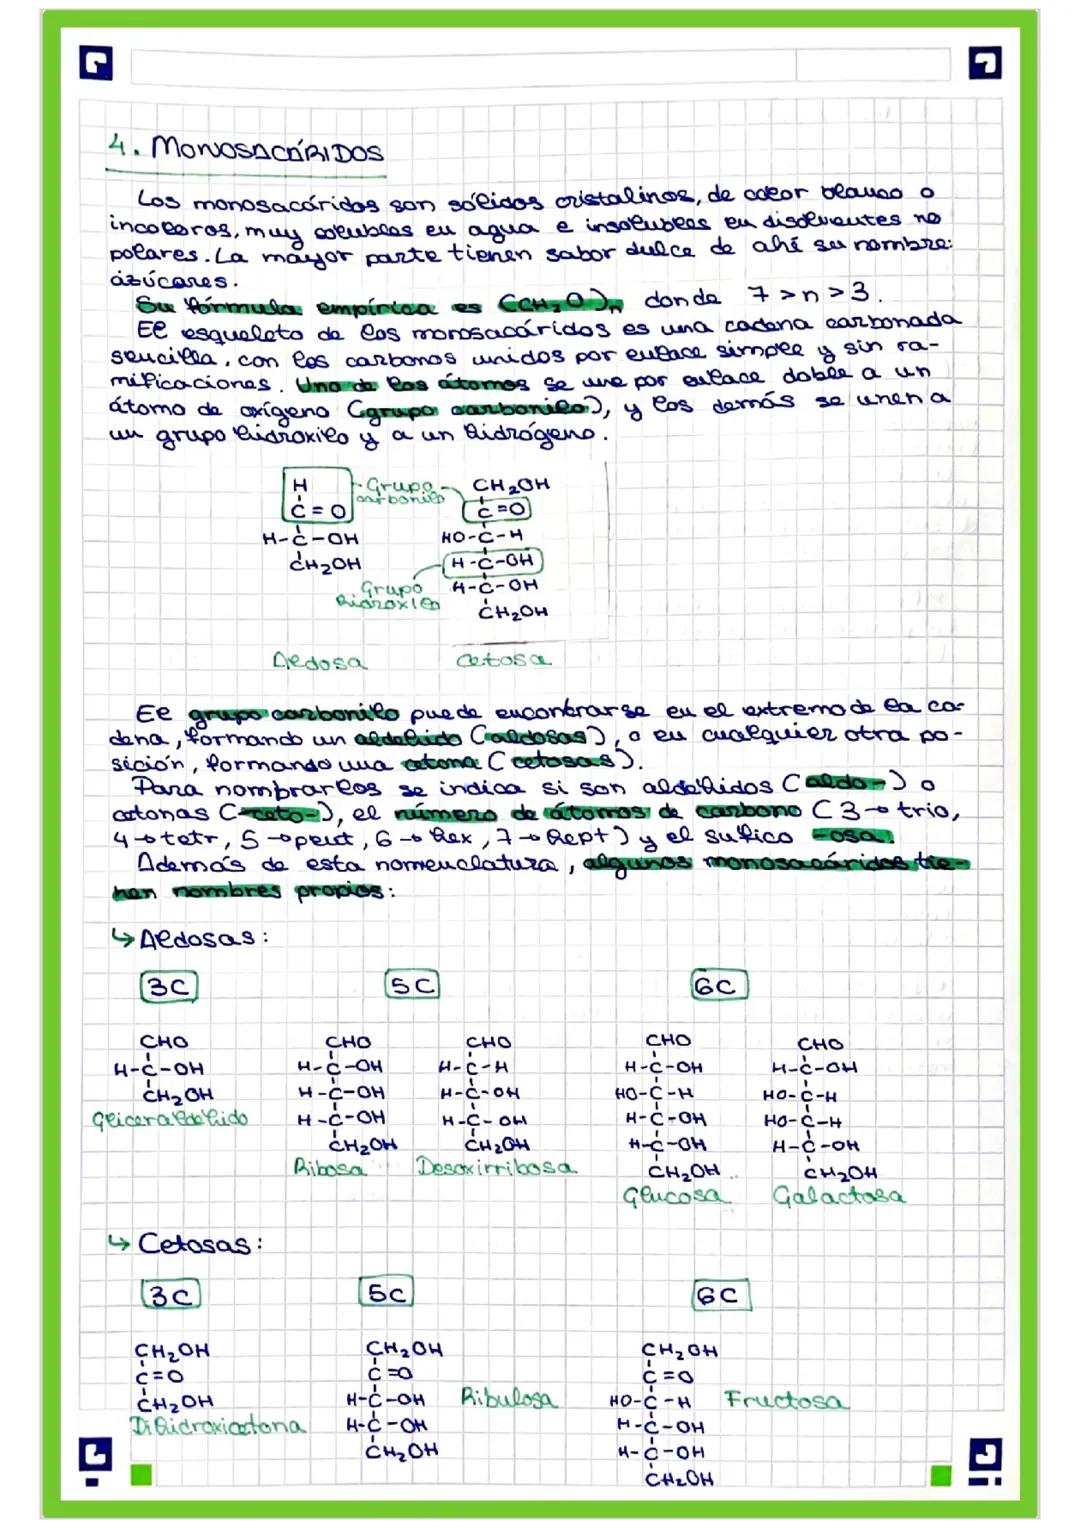 4. MONOSACÁRIDOS
Los monosacáridos son sólidos cristalinos, de color blanco o
incoloros, muy solubles en agua e insolubles en disolventes no
polares. La mayor parte tienen sabor dulce de ahí su nombre:
azúcares.
Su fórmula empírica es (CH₂O)ₙ donde 7>n>3.
El esqueleto de los monosacáridos es una cadena carbonada
sencilla, con los carbonos unidos por enlace simple y sin ra-
mificaciones. Uno de los átomos se une por enlace doble a un
átomo de oxígeno (grupo carbonilo), y los demás se unen a
un grupo hidroxilo y a un hidrógeno.
H Grupo CH₂OH
carbonilo
C=O C=O
H-C-OH HO-C-H
CH₂OH H-C-OH
Grupo H-C-OH
hidroxilo CH₂OH
Aldosa Cetosa
El grupo carbonilo puede encontrarse en el extremo de la ca-
dena, formando un aldehido (aldosas), o en cualquier otra po-
sición, formando una cetona (cetosas).
Para nombrarlos se indica si son aldehidos (aldo-) o
cetonas (-ceto-), el número de átomos de carbono (3→trio,
4→tetr, 5→pent, 6→hex, 7→hept) y el sufico -osa.
Además de esta nomenclatura, algunos monosacáridos tie-
nen nombres propios:
↳ Aldosas:
3C 5C 6C
CHO CHO CHO CHO CHO
H-C-OH H-C-OH H-C-H H-C-OH H-C-OH
CH₂OH H-C-OH H-C-OH HO-C-H HO-C-H
Gliceraldehido H-C-OH H-C-OH H-C-OH HO-C-H
CH₂OH CH₂OH H-C-OH H-C-OH
Ribosa Desoxirribosa CH₂OH CH₂OH
Glucosa Galactosa
↳ Cetosas:
3C 5C 6C
CH₂OH CH₂OH CH₂OH
C=O C=O C=O
CH₂OH H-C-OH Ribulosa HO-C-H Fructosa
Dihidroxicetona H-C-OH H-C-OH
CH₂OH H-C-OH
CH₂OH